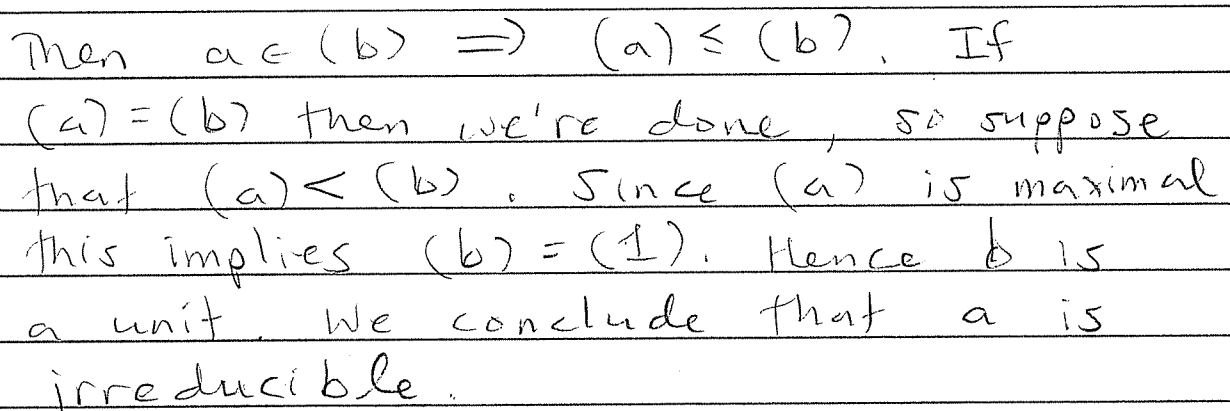 Then a ∈ (b) ⟹ (a) ≤ (b). If
(a) = (b) then we're done, so suppose
that (a) < (b). Since (a) is maximal
this implies (b) = (1). Hence b is
a unit. We conclude that a is
irreducible.